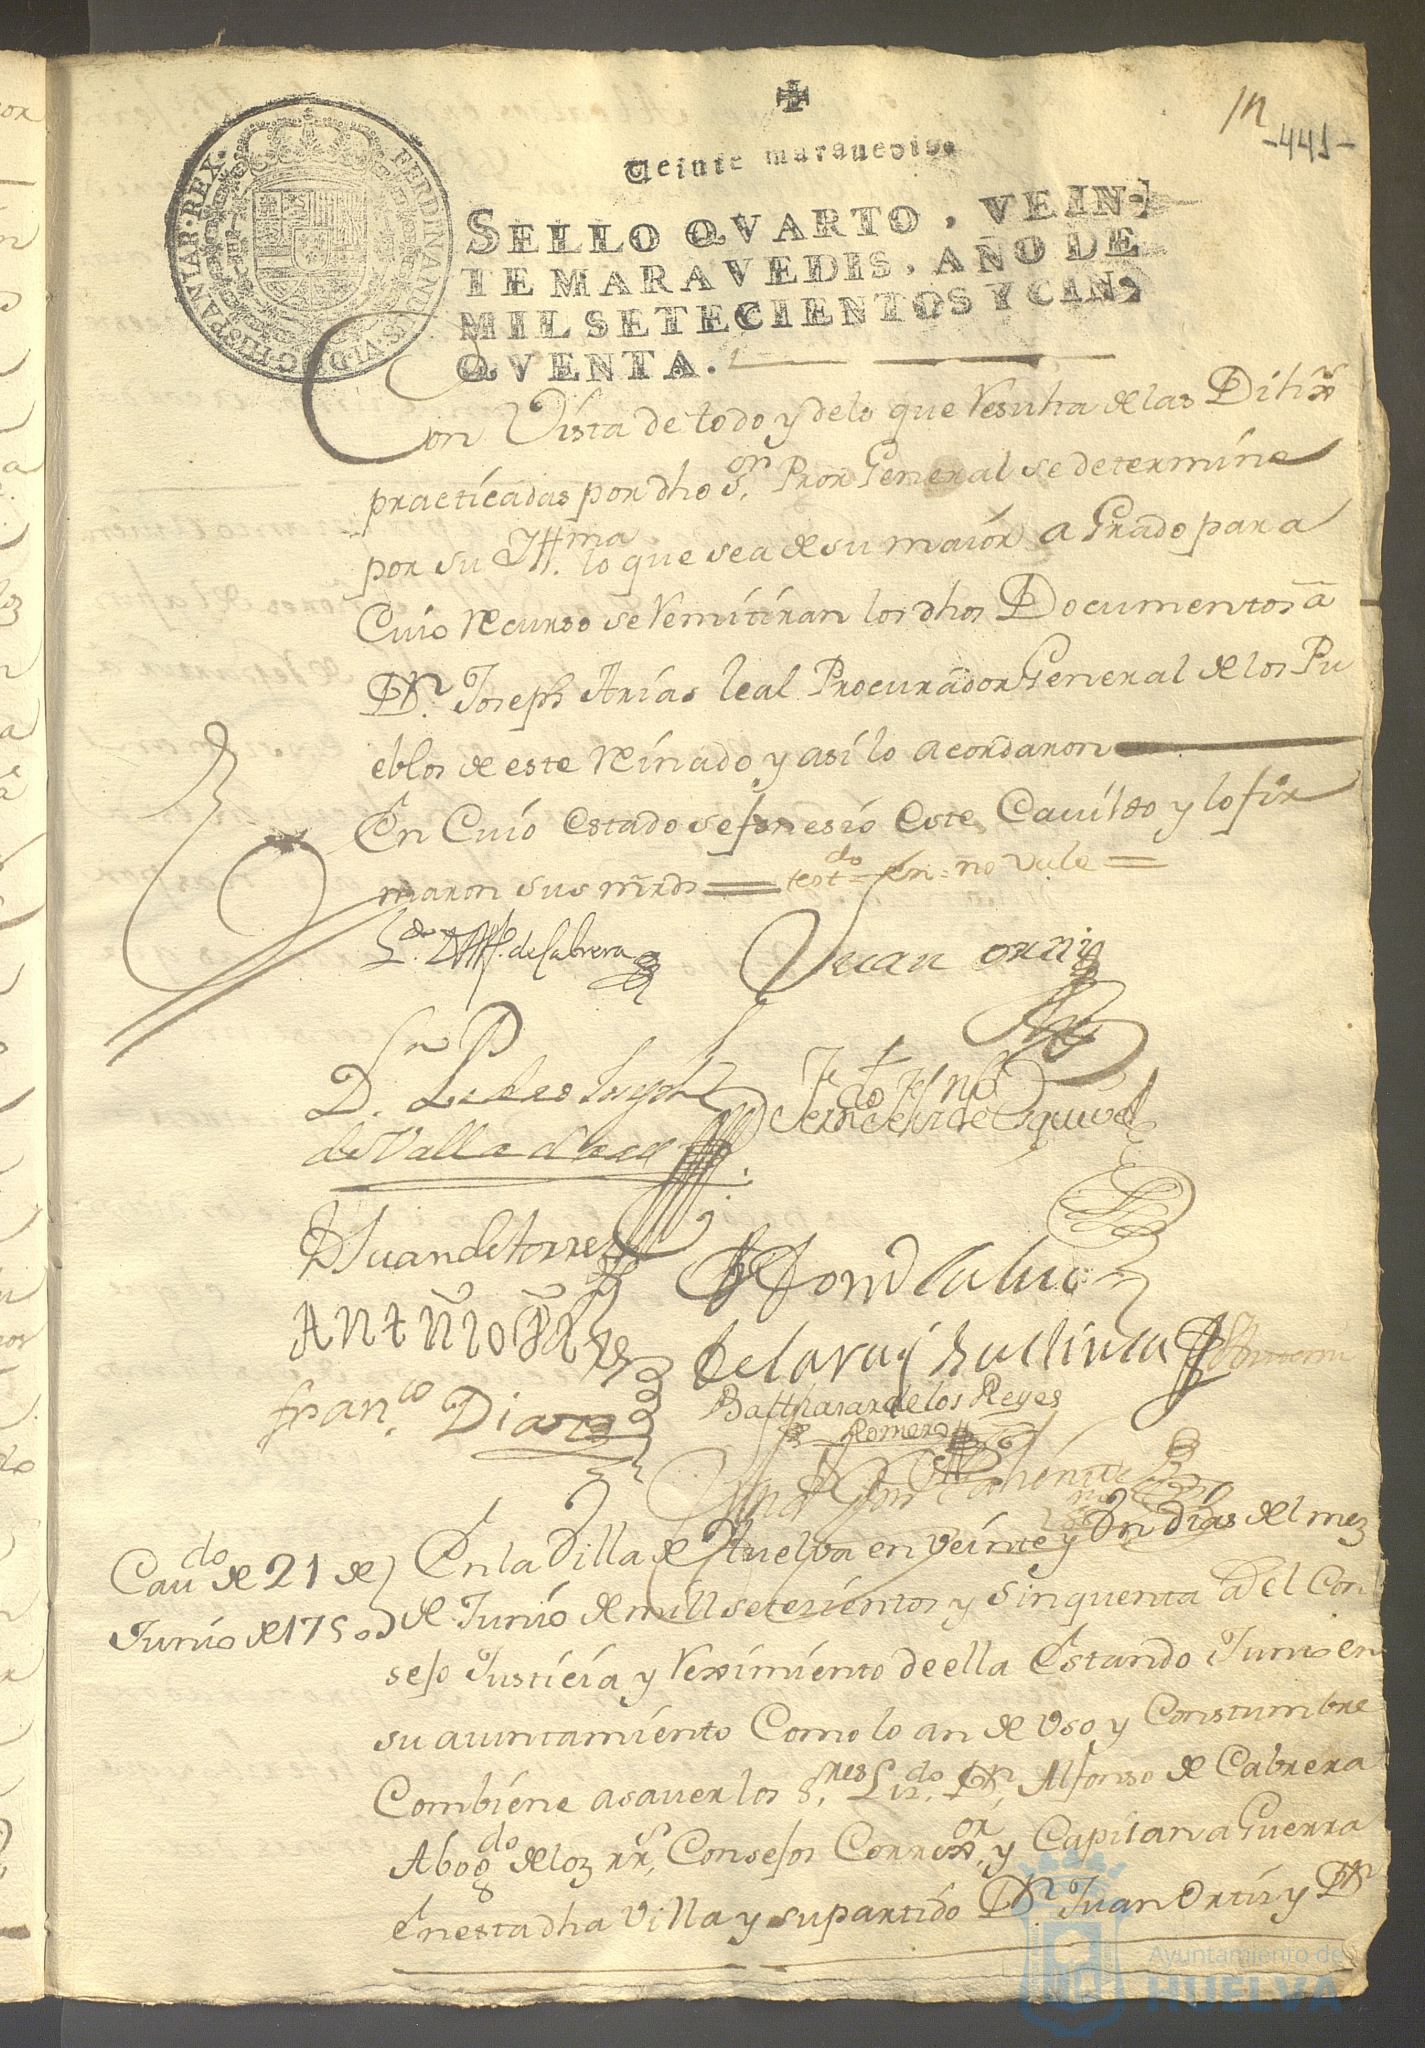 1n
-441-
Veinte maravedis.
SELLO QVARTO, VEIN-
TE MARAVEDIS, AÑO DE
MIL SETECIENTOS Y CIN-
QVENTA.
FERDINANDUS·VI·D·G·HISPANIAR·REX·
Con Vista de todo y de lo que Resulta de las Dilix.s
practicadas por dho S.or Pror General se determine
por su Illma. lo que sea de su maior aGrado para
Cuio Recurso se Remitiran los dhos Documentos a
Dn. Joseph Arias leal Procurador General de los Pu
eblos de este Reinado y asi lo acordaron
En Cuio estado se feneseió este Cavildo y lo fir
maron sus mrds = testdo = en = no vale =
Ldo. D Alfo. de Cabrera
Juan ortiz
Dn. Pedro
Juan de torres
Antonio
de la
Franco. Diaz
Balthasar de los Reyes
Romero
Cavdo de 21 de
Junio de 1750
En la Villa de Huelva en veinte y Un dias del mez
de Junio de mill setezientos y sinquenta a el Con
sejo Justicia y Reximiento de ella Estando Junto en
su auintamiento Como lo an de Uso y Constumbre
Combiene asaver los S.res Liz.do Dn. Alfonso de Cabrera
Abogdo de loz RRs. Consejos Correxor. y Capitan a Guerra
en esta dha Villa y su partido Dn. Juan Ortiz y Dn
Ayuntamiento de
HUELVA